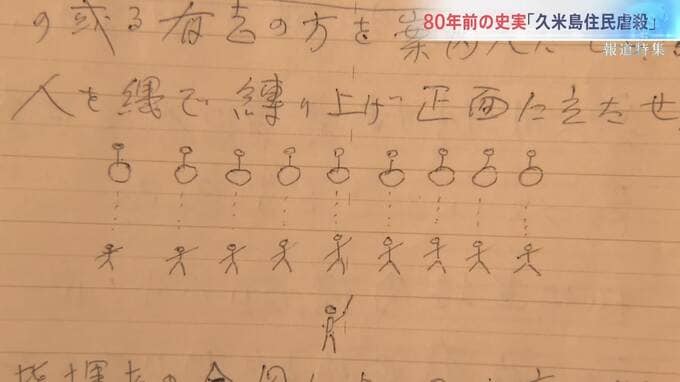 80年前の史実「久米島住民虐殺」
報道特集
の或る有志の方を案内人にして
人を縄で縛り上げ正面に立たせ
指揮者の合図